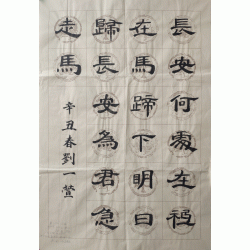 長安何處在祇
在馬蹄下明日
歸長安為君急
走馬
辛丑春劉一